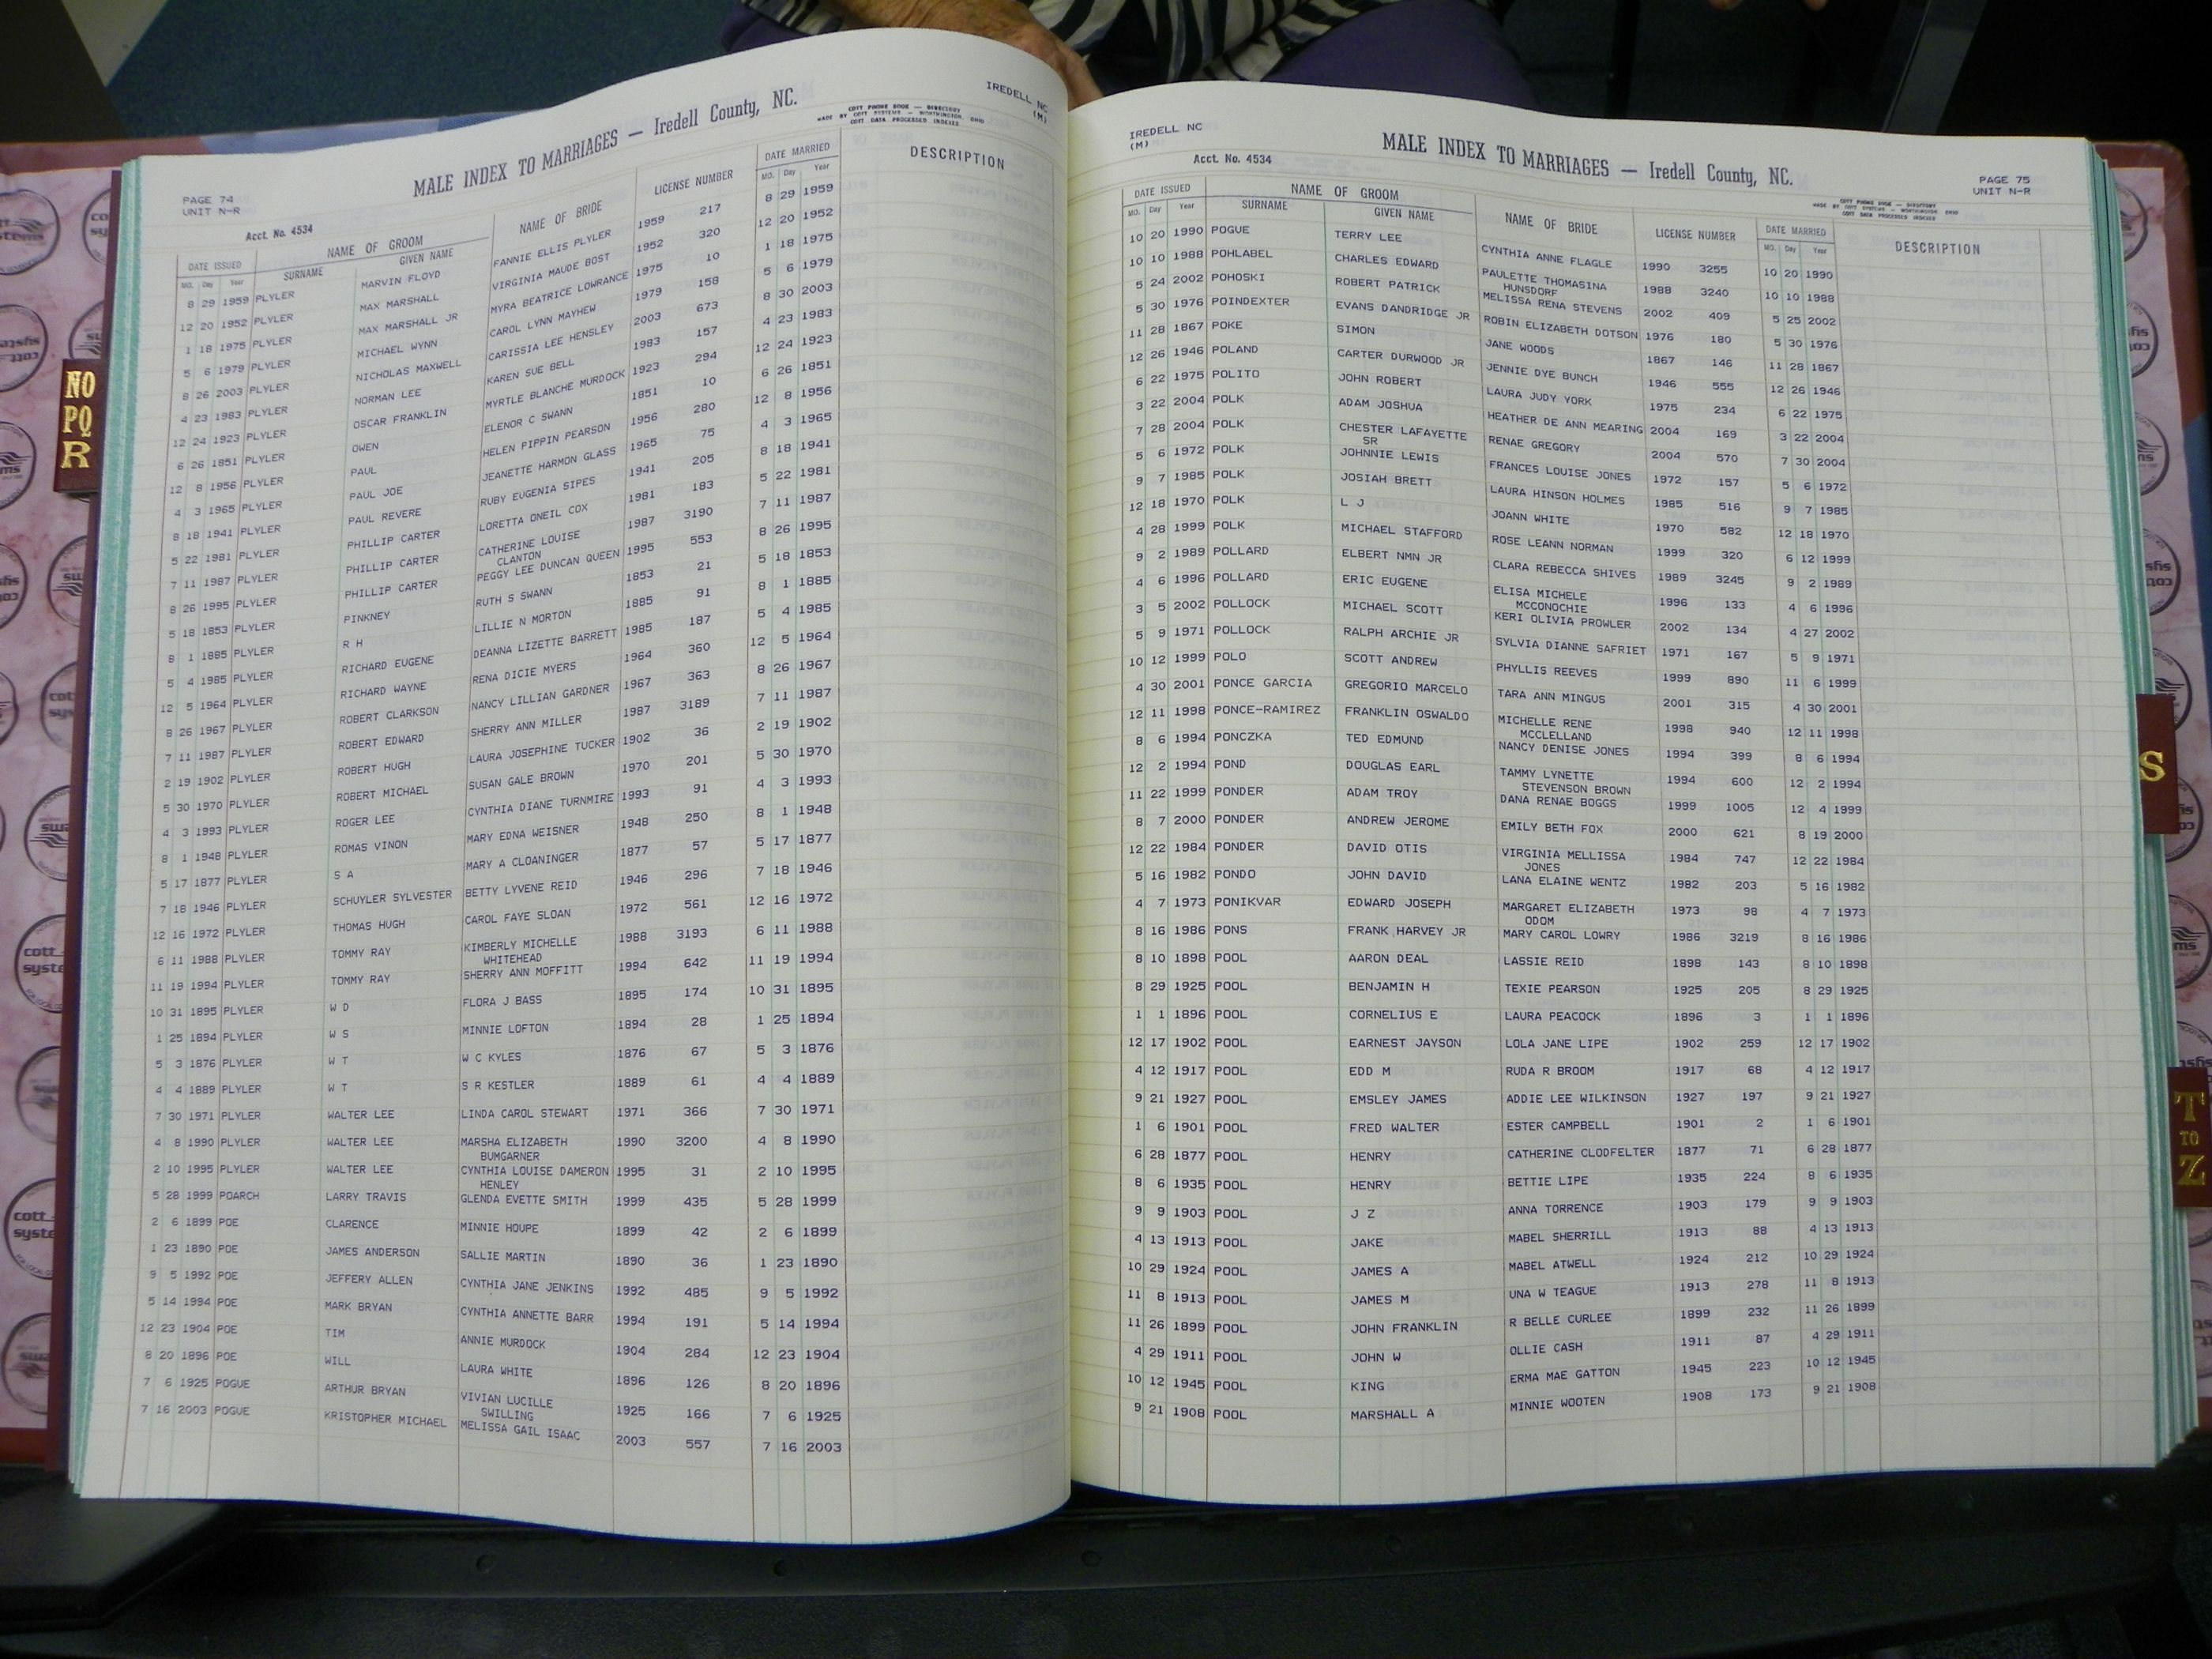 IREDELL NC
(M)
MALE INDEX TO MARRIAGES — Iredell County, NC.
COTT PHONE BOOK — DIRECTORY
MADE BY COTT SYSTEMS — WORTHINGTON, OHIO
COTT DATA PROCESSED INDEXES
PAGE 74
UNIT N-R
Acct. No. 4534
DATE ISSUED NAME OF GROOM NAME OF BRIDE LICENSE NUMBER DATE MARRIED DESCRIPTION
MO. Day Year SURNAME GIVEN NAME MO. Day Year
8 29 1959 PLYLER MARVIN FLOYD FANNIE ELLIS PLYLER 1959 217 8 29 1959
12 20 1952 PLYLER MAX MARSHALL VIRGINIA MAUDE BOST 1952 320 12 20 1952
1 18 1975 PLYLER MAX MARSHALL JR MYRA BEATRICE LOWRANCE 1975 10 1 18 1975
5 6 1979 PLYLER MICHAEL WYNN CAROL LYNN MAYHEW 1979 158 5 6 1979
8 26 2003 PLYLER NICHOLAS MAXWELL CARISSIA LEE HENSLEY 2003 673 8 30 2003
4 23 1983 PLYLER NORMAN LEE KAREN SUE BELL 1983 157 4 23 1983
12 24 1923 PLYLER OSCAR FRANKLIN MYRTLE BLANCHE MURDOCK 1923 294 12 24 1923
6 26 1851 PLYLER OWEN ELENOR C SWANN 1851 10 6 26 1851
12 8 1956 PLYLER PAUL HELEN PIPPIN PEARSON 1956 280 12 8 1956
4 3 1965 PLYLER PAUL JOE JEANETTE HARMON GLASS 1965 75 4 3 1965
8 18 1941 PLYLER PAUL REVERE RUBY EUGENIA SIPES 1941 205 8 18 1941
5 22 1981 PLYLER PHILLIP CARTER LORETTA ONEIL COX 1981 183 5 22 1981
7 11 1987 PLYLER PHILLIP CARTER CATHERINE LOUISE 1987 3190 7 11 1987
CLANTON
8 26 1995 PLYLER PHILLIP CARTER PEGGY LEE DUNCAN QUEEN 1995 553 8 26 1995
5 18 1853 PLYLER PINKNEY RUTH S SWANN 1853 21 5 18 1853
8 1 1885 PLYLER R H LILLIE N MORTON 1885 91 8 1 1885
5 4 1985 PLYLER RICHARD EUGENE DEANNA LIZETTE BARRETT 1985 187 5 4 1985
12 5 1964 PLYLER RICHARD WAYNE RENA DICIE MYERS 1964 360 12 5 1964
8 26 1967 PLYLER ROBERT CLARKSON NANCY LILLIAN GARDNER 1967 363 8 26 1967
7 11 1987 PLYLER ROBERT EDWARD SHERRY ANN MILLER 1987 3189 7 11 1987
2 19 1902 PLYLER ROBERT HUGH LAURA JOSEPHINE TUCKER 1902 36 2 19 1902
5 30 1970 PLYLER ROBERT MICHAEL SUSAN GALE BROWN 1970 201 5 30 1970
4 3 1993 PLYLER ROGER LEE CYNTHIA DIANE TURNMIRE 1993 91 4 3 1993
8 1 1948 PLYLER ROMAS VINON MARY EDNA WEISNER 1948 250 8 1 1948
5 17 1877 PLYLER S A MARY A CLOANINGER 1877 57 5 17 1877
7 18 1946 PLYLER SCHUYLER SYLVESTER BETTY LYVENE REID 1946 296 7 18 1946
12 16 1972 PLYLER THOMAS HUGH CAROL FAYE SLOAN 1972 561 12 16 1972
6 11 1988 PLYLER TOMMY RAY KIMBERLY MICHELLE 1988 3193 6 11 1988
WHITEHEAD
11 19 1994 PLYLER TOMMY RAY SHERRY ANN MOFFITT 1994 642 11 19 1994
10 31 1895 PLYLER W D FLORA J BASS 1895 174 10 31 1895
1 25 1894 PLYLER W S MINNIE LOFTON 1894 28 1 25 1894
5 3 1876 PLYLER W T W C KYLES 1876 67 5 3 1876
4 4 1889 PLYLER W T S R KESTLER 1889 61 4 4 1889
7 30 1971 PLYLER WALTER LEE LINDA CAROL STEWART 1971 366 7 30 1971
4 8 1990 PLYLER WALTER LEE MARSHA ELIZABETH 1990 3200 4 8 1990
BUMGARNER
2 10 1995 PLYLER WALTER LEE CYNTHIA LOUISE DAMERON 1995 31 2 10 1995
HENLEY
5 28 1999 POARCH LARRY TRAVIS GLENDA EVETTE SMITH 1999 435 5 28 1999
2 6 1899 POE CLARENCE MINNIE HOUPE 1899 42 2 6 1899
1 23 1890 POE JAMES ANDERSON SALLIE MARTIN 1890 36 1 23 1890
9 5 1992 POE JEFFERY ALLEN CYNTHIA JANE JENKINS 1992 485 9 5 1992
5 14 1994 POE MARK BRYAN CYNTHIA ANNETTE BARR 1994 191 5 14 1994
12 23 1904 POE TIM ANNIE MURDOCK 1904 284 12 23 1904
8 20 1896 POE WILL LAURA WHITE 1896 126 8 20 1896
7 6 1925 POGUE ARTHUR BRYAN VIVIAN LUCILLE 1925 166 7 6 1925
SWILLING
7 16 2003 POGUE KRISTOPHER MICHAEL MELISSA GAIL ISAAC 2003 557 7 16 2003
IREDELL NC
(M)
MALE INDEX TO MARRIAGES — Iredell County, NC.
Acct. No. 4534
PAGE 75
UNIT N-R
COTT PHONE BOOK — DIRECTORY
MADE BY COTT SYSTEMS — WORTHINGTON, OHIO
COTT DATA PROCESSED INDEXES
DATE ISSUED NAME OF GROOM NAME OF BRIDE LICENSE NUMBER DATE MARRIED DESCRIPTION
MO. Day Year SURNAME GIVEN NAME MO. Day Year
10 20 1990 POGUE TERRY LEE CYNTHIA ANNE FLAGLE 1990 3255 10 20 1990
10 10 1988 POHLABEL CHARLES EDWARD PAULETTE THOMASINA 1988 3240 10 10 1988
HUNSDORF
5 24 2002 POHOSKI ROBERT PATRICK MELISSA RENA STEVENS 2002 409 5 25 2002
5 30 1976 POINDEXTER EVANS DANDRIDGE JR ROBIN ELIZABETH DOTSON 1976 180 5 30 1976
11 28 1867 POKE SIMON JANE WOODS 1867 146 11 28 1867
12 26 1946 POLAND CARTER DURWOOD JR JENNIE DYE BUNCH 1946 555 12 26 1946
6 22 1975 POLITO JOHN ROBERT LAURA JUDY YORK 1975 234 6 22 1975
3 22 2004 POLK ADAM JOSHUA HEATHER DE ANN MEARING 2004 169 3 22 2004
7 28 2004 POLK CHESTER LAFAYETTE RENAE GREGORY 2004 570 7 30 2004
SR
5 6 1972 POLK JOHNNIE LEWIS FRANCES LOUISE JONES 1972 157 5 6 1972
9 7 1985 POLK JOSIAH BRETT LAURA HINSON HOLMES 1985 516 9 7 1985
12 18 1970 POLK L J JOANN WHITE 1970 582 12 18 1970
4 28 1999 POLK MICHAEL STAFFORD ROSE LEANN NORMAN 1999 320 6 12 1999
9 2 1989 POLLARD ELBERT NMN JR CLARA REBECCA SHIVES 1989 3245 9 2 1989
4 6 1996 POLLARD ERIC EUGENE ELISA MICHELE 1996 133 4 6 1996
MCCONOCHIE
3 5 2002 POLLOCK MICHAEL SCOTT KERI OLIVIA PROWLER 2002 134 4 27 2002
5 9 1971 POLLOCK RALPH ARCHIE JR SYLVIA DIANNE SAFRIET 1971 167 5 9 1971
10 12 1999 POLO SCOTT ANDREW PHYLLIS REEVES 1999 890 11 6 1999
4 30 2001 PONCE GARCIA GREGORIO MARCELO TARA ANN MINGUS 2001 315 4 30 2001
12 11 1998 PONCE-RAMIREZ FRANKLIN OSWALDO MICHELLE RENE 1998 940 12 11 1998
MCCLELLAND
8 6 1994 PONCZKA TED EDMUND NANCY DENISE JONES 1994 399 8 6 1994
12 2 1994 POND DOUGLAS EARL TAMMY LYNETTE 1994 600 12 2 1994
STEVENSON BROWN
11 22 1999 PONDER ADAM TROY DANA RENAE BOGGS 1999 1005 12 4 1999
8 7 2000 PONDER ANDREW JEROME EMILY BETH FOX 2000 621 8 19 2000
12 22 1984 PONDER DAVID OTIS VIRGINIA MELLISSA 1984 747 12 22 1984
JONES
5 16 1982 PONDO JOHN DAVID LANA ELAINE WENTZ 1982 203 5 16 1982
4 7 1973 PONIKVAR EDWARD JOSEPH MARGARET ELIZABETH 1973 98 4 7 1973
ODOM
8 16 1986 PONS FRANK HARVEY JR MARY CAROL LOWRY 1986 3219 8 16 1986
8 10 1898 POOL AARON DEAL LASSIE REID 1898 143 8 10 1898
8 29 1925 POOL BENJAMIN H TEXIE PEARSON 1925 205 8 29 1925
1 1 1896 POOL CORNELIUS E LAURA PEACOCK 1896 3 1 1 1896
12 17 1902 POOL EARNEST JAYSON LOLA JANE LIPE 1902 259 12 17 1902
4 12 1917 POOL EDD M RUDA R BROOM 1917 68 4 12 1917
9 21 1927 POOL EMSLEY JAMES ADDIE LEE WILKINSON 1927 197 9 21 1927
1 6 1901 POOL FRED WALTER ESTER CAMPBELL 1901 2 1 6 1901
6 28 1877 POOL HENRY CATHERINE CLODFELTER 1877 71 6 28 1877
8 6 1935 POOL HENRY BETTIE LIPE 1935 224 8 6 1935
9 9 1903 POOL J Z ANNA TORRENCE 1903 179 9 9 1903
4 13 1913 POOL JAKE MABEL SHERRILL 1913 88 4 13 1913
10 29 1924 POOL JAMES A MABEL ATWELL 1924 212 10 29 1924
11 8 1913 POOL JAMES M UNA W TEAGUE 1913 278 11 8 1913
11 26 1899 POOL JOHN FRANKLIN R BELLE CURLEE 1899 232 11 26 1899
4 29 1911 POOL JOHN W OLLIE CASH 1911 87 4 29 1911
10 12 1945 POOL KING ERMA MAE GATTON 1945 223 10 12 1945
9 21 1908 POOL MARSHALL A MINNIE WOOTEN 1908 173 9 21 1908
NO
PQ
R
S
T
TO
Z
cott
systems